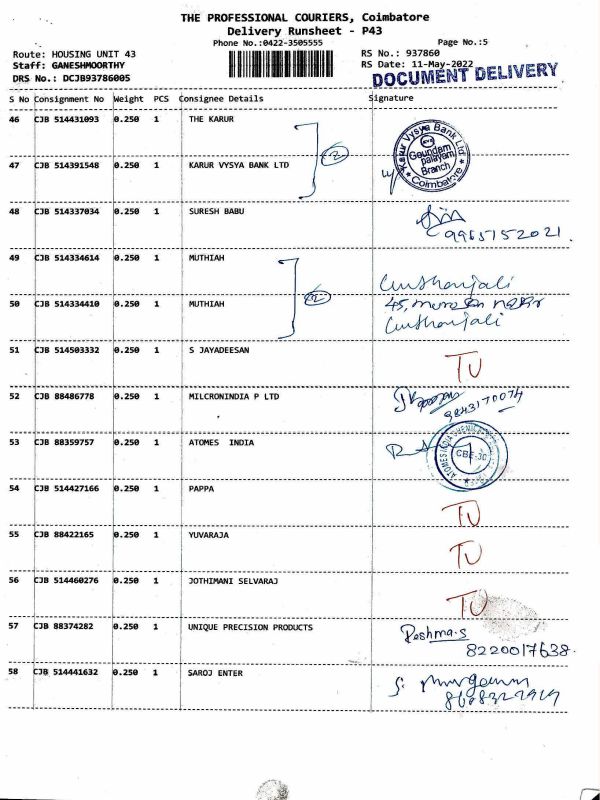 THE PROFESSIONAL COURIERS, Coimbatore
Delivery Runsheet - P43
Phone No.:0422-3505555 Page No.:5
Route: HOUSING UNIT 43 RS No.: 937860
Staff: GANESHMOORTHY RS Date: 11-May-2022
DRS No.: DCJB93786005 DOCUMENT DELIVERY
S No Consignment No Weight PCS Consignee Details Signature
46 CJB 514431093 0.250 1 THE KARUR
Karur Vysya Bank Ltd
Goundam palayam Branch
Coimbatore
2
47 CJB 514391548 0.250 1 KARUR VYSYA BANK LTD
48 CJB 514337034 0.250 1 SURESH BABU
9965152021.
49 CJB 514334614 0.250 1 MUTHIAH
2
50 CJB 514334410 0.250 1 MUTHIAH 45,
51 CJB 514503332 0.250 1 S JAYADEESAN TU
52 CJB 88486778 0.250 1 MILCRONINDIA P LTD
9843170074
53 CJB 88359757 0.250 1 ATOMES INDIA
CBE-30
54 CJB 514427166 0.250 1 PAPPA TU
55 CJB 88422165 0.250 1 YUVARAJA TU
56 CJB 514460276 0.250 1 JOTHIMANI SELVARAJ TU
57 CJB 88374282 0.250 1 UNIQUE PRECISION PRODUCTS Reshma.s
8220017638.
58 CJB 514441632 0.250 1 SAROJ ENTER S.